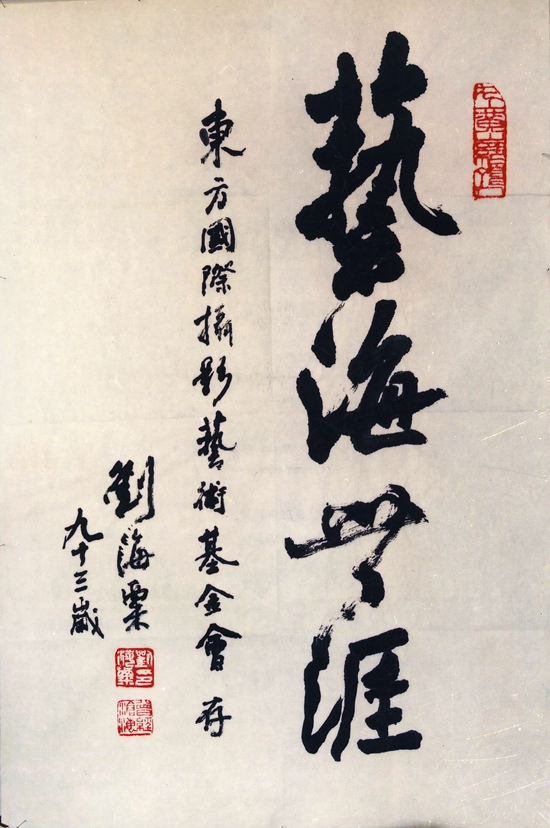 藝海無涯
東方國際攝影藝術基金會 存
劉海粟
九十三歲
曾經滄海